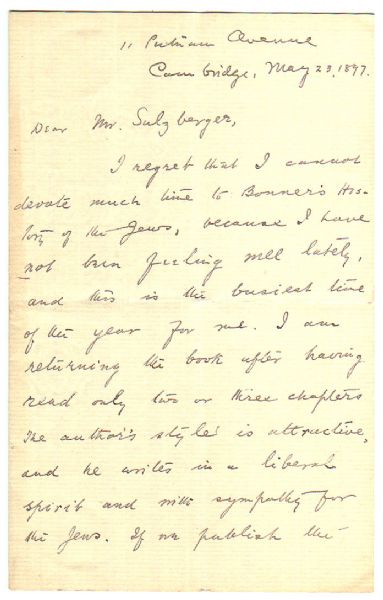 11 Putnam Avenue
Cambridge, May 23, 1897.
Dear Mr. Sulzberger,
I regret that I cannot
devote much time to Bonner's His-
tory of the Jews, because I have
not been feeling well lately,
and this is the busiest time
of the year for me. I am
returning the book after having
read only two or three chapters
The author's style is attractive,
and he writes in a liberal
spirit and with sympathy for
the Jews. If we publish the